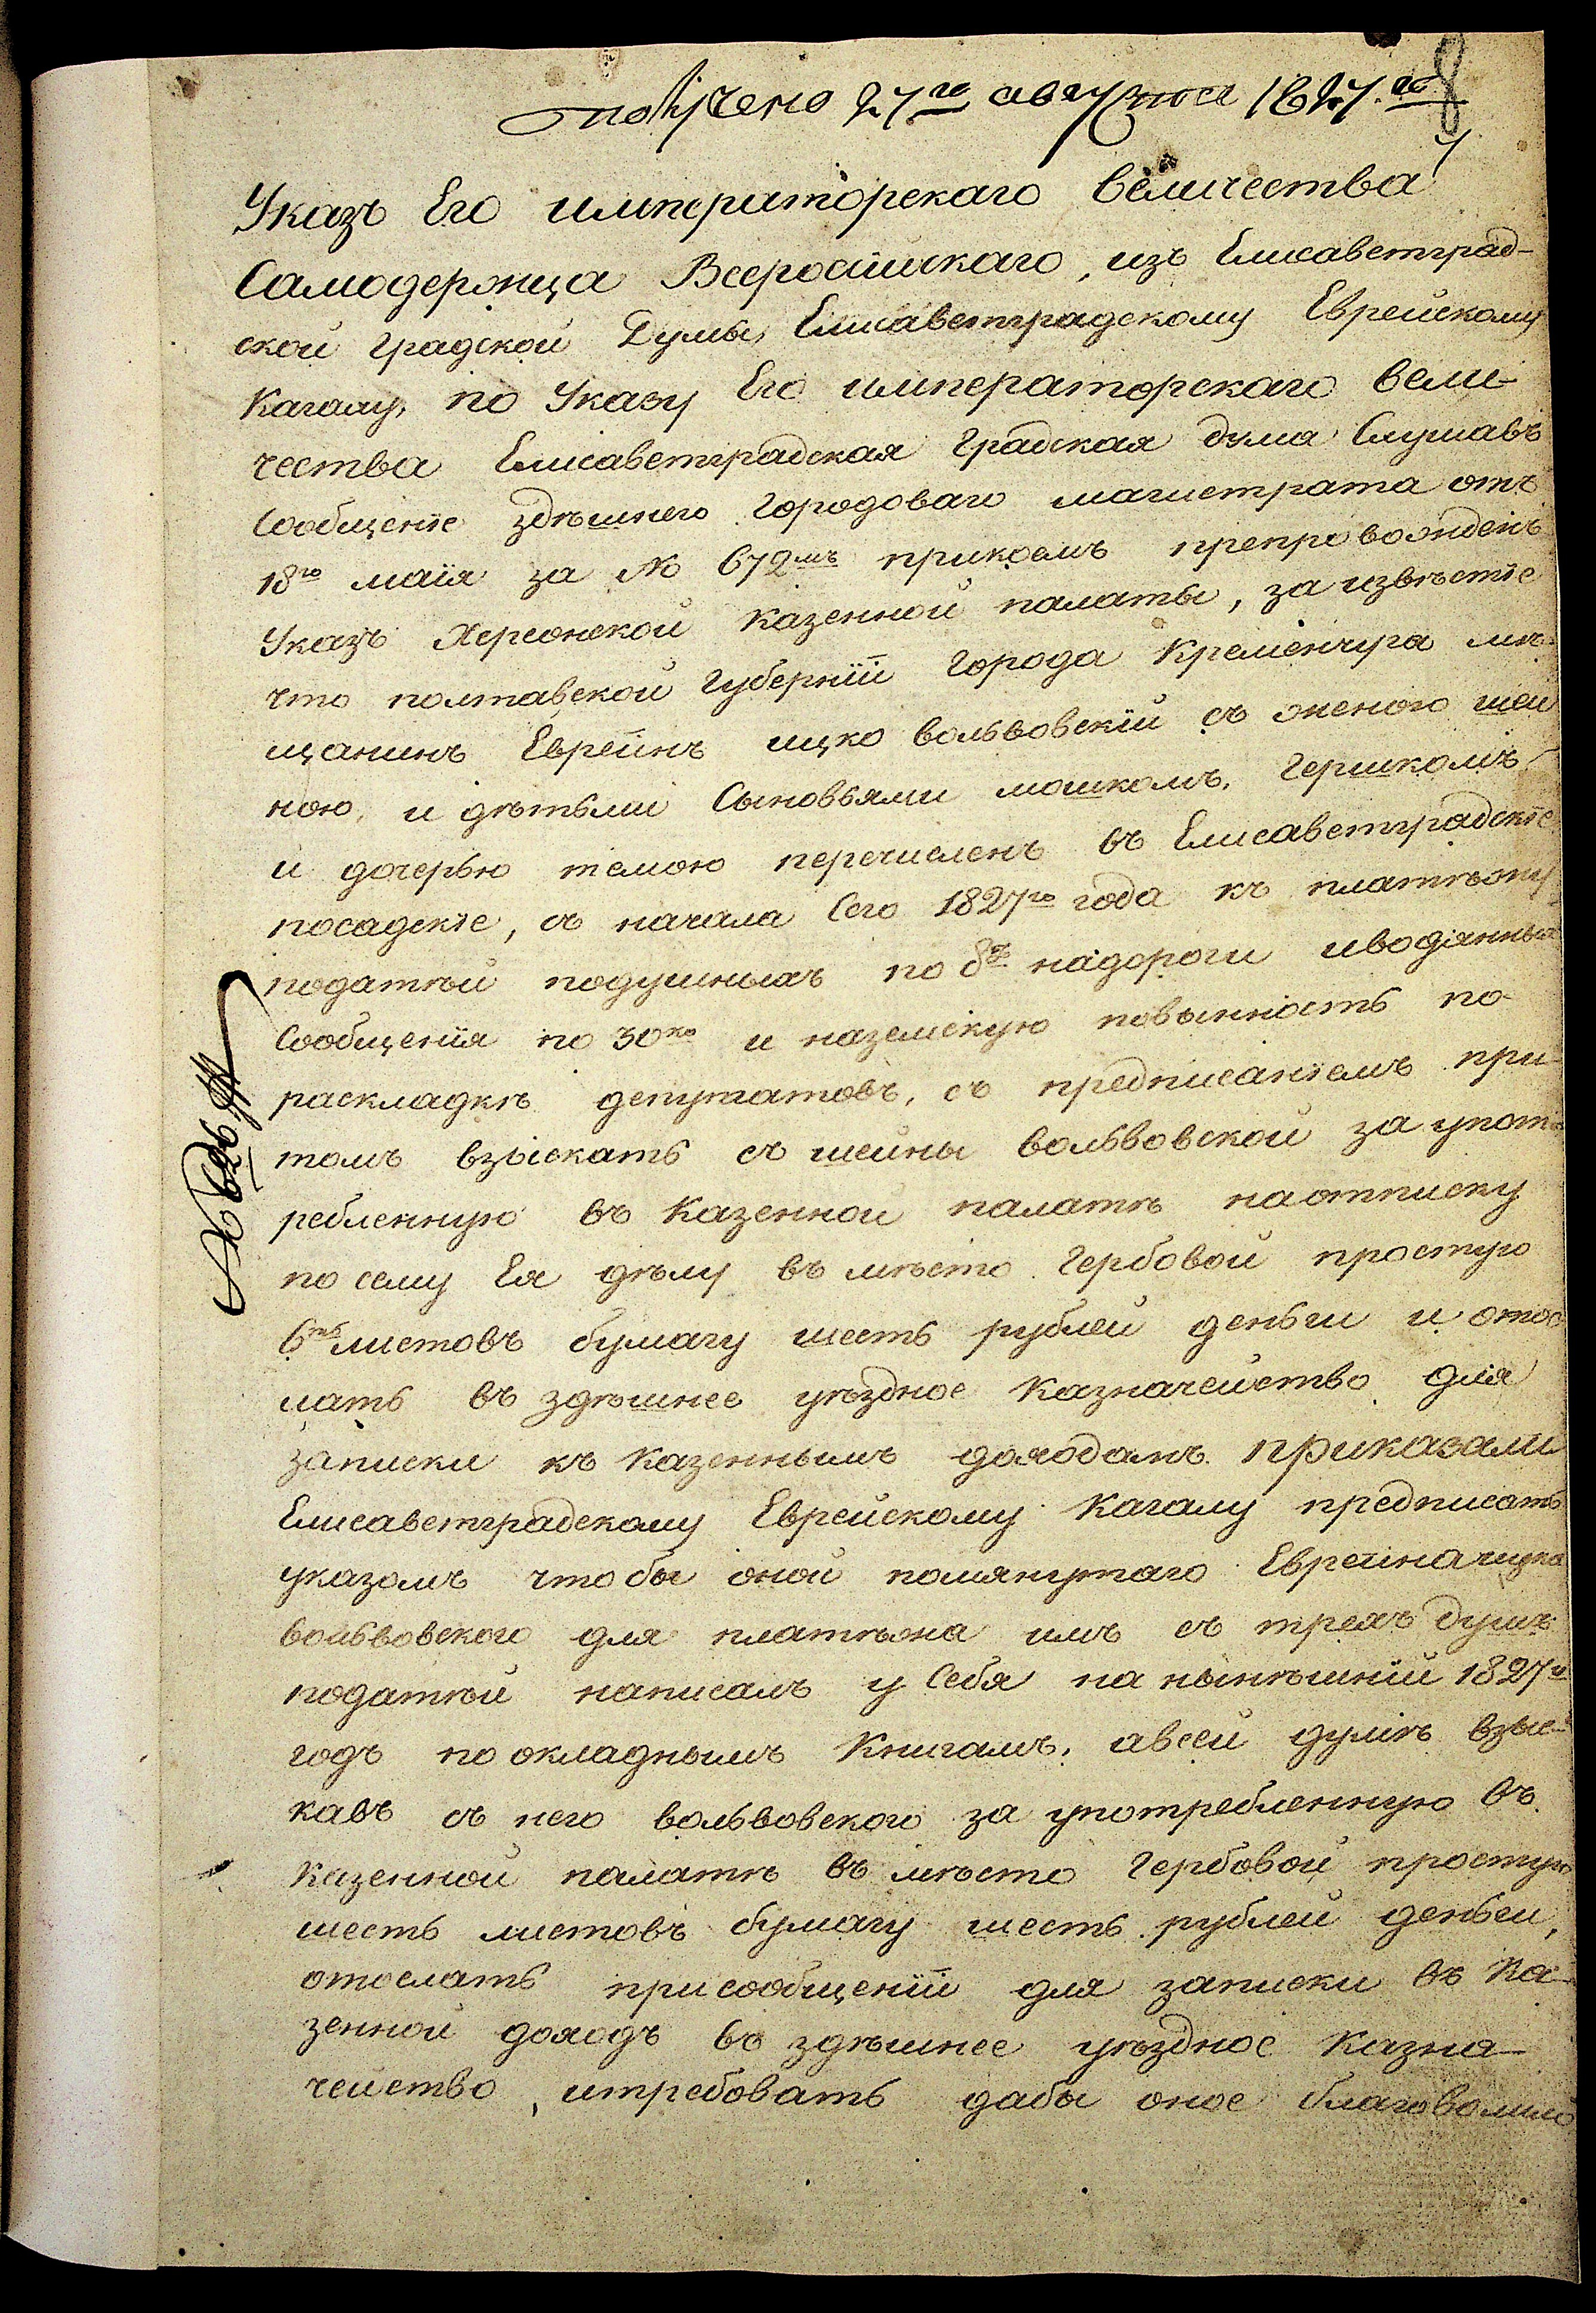 получено 27го августа 1827.го
8
Указъ Его императорскаго величества
Самодержца Всеросiйскаго, изъ Елисаветград-
ской градской Думы, Елисаветградскому Еврейскому
Кагалу, по Указу Его императорскаго вели-
чества Елисаветградская градская дума Слушавъ
Сообщенiе здѣшнего городоваго магистрата отъ
18го маiя за № 672мъ прикоемъ препровожденъ
Указъ Херсонской казенной палаты, за извѣстiе
что полтавской губернiи города Кременчуга мѣ-
щанинъ Евреинъ ицко вольвовскiй съ женою шей
ною, и дѣтьми Сыновьями мошкомъ, гершкомъ
и дочерью темою перечисленъ въ Елисаветградскiе
посадскiе, съ начала Сего 1827го года къ платѣжу
податѣй подушныхъ по 8р надороги иводяныя
Сообщенiя по 30ко и наземскую повынность по
раскладкѣ депутатовъ, съ предписанiемъ при
томъ взыскать съ шейны вольвовской за упот
ребленную въ Казенной палатѣ наотписку
по сему Ея дѣлу въ мѣсто гербовой простую
6ть листовъ бумагу шесть рублей деньги и отос
лать въ здѣшнее уѣздное Казначейство для
записки къ Казеннымъ доходамъ. приказали
Елисаветградскому Еврейскому Кагалу предписать
указомъ чтобы оной помянутаго Евреина ицка
вольвовского для платѣжа имъ съ трехъ душъ
податѣй написалъ у Себя на нынѣшнiй 1827й
годъ по окладнымъ Книгамъ, авсей думѣ взыс-
кавъ съ него вольвовского за употребленную въ
казенной палатѣ въ мѣсто гербовой простую
шесть листовъ бумагу шесть рублей деньги,
отослать присообщенiи для записки въ Ка-
зенной доходъ во здѣшнее уѣздное Казна-
чейство, итребовать дабы оное благоволило